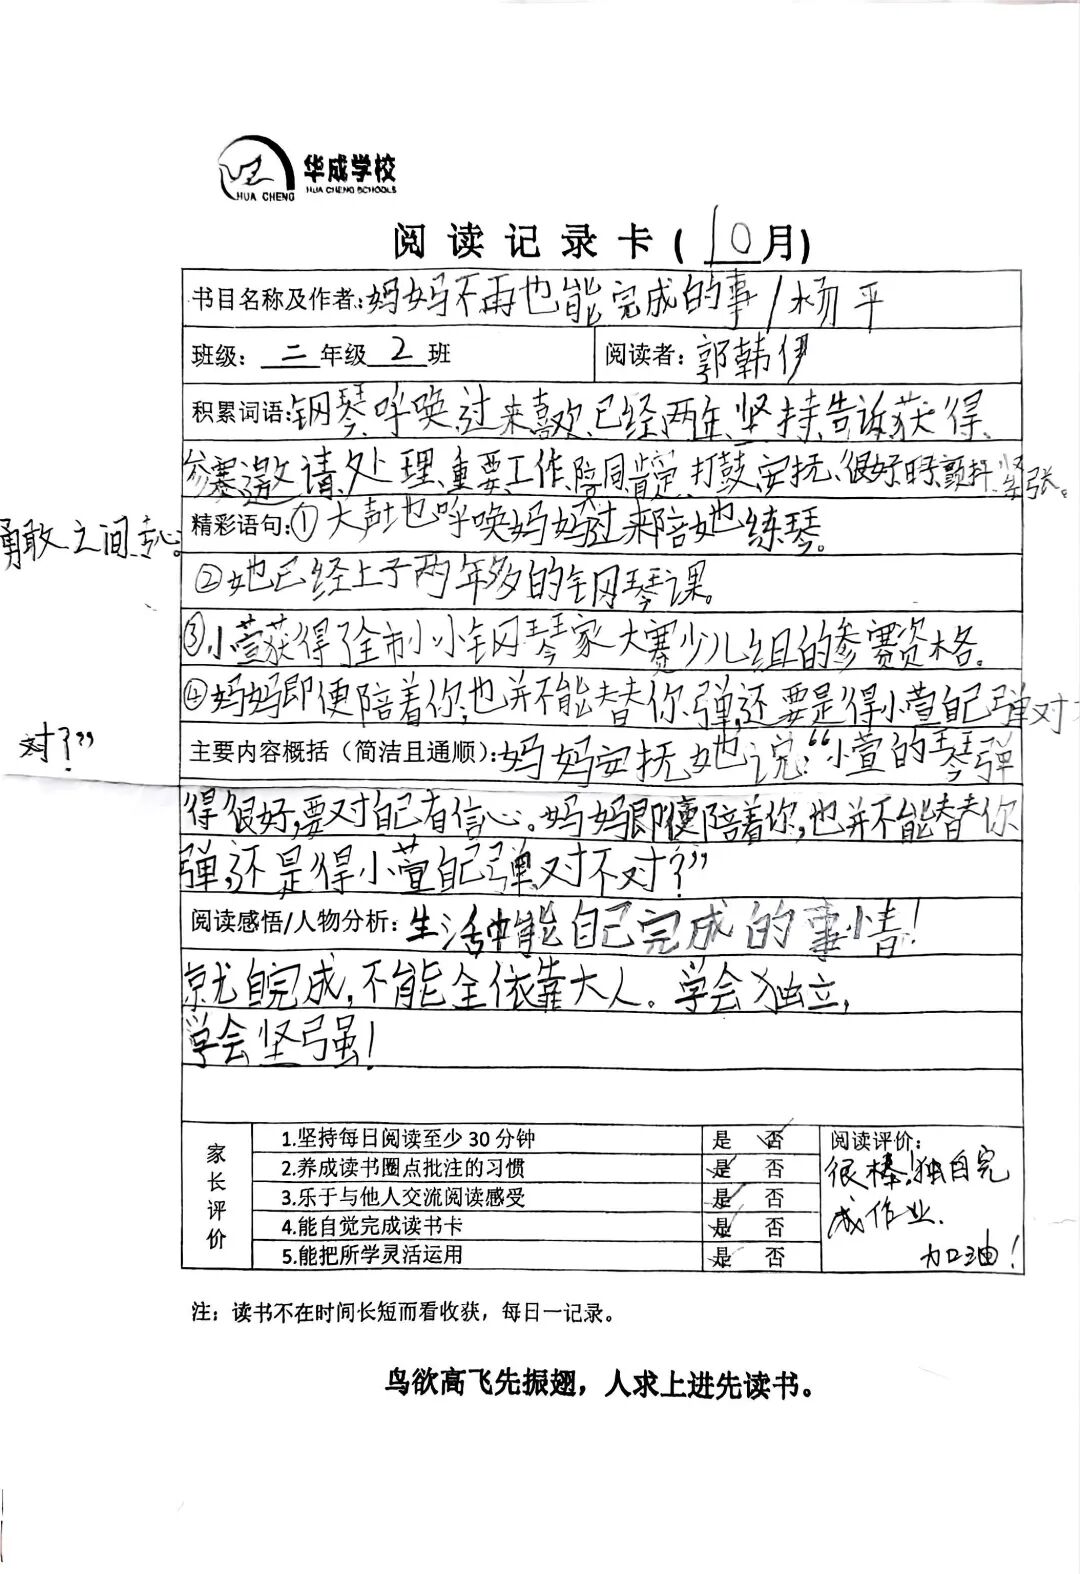 华成学校
HUA CHENG SCHOOLS
HUA CHENG
阅读记录卡(10月)
书目名称及作者:妈妈不再也能完成的事/杨平
班级：二年级2班 阅读者：郭韩伊
积累词语:钢琴、呼唤、过来、喜欢、已经、两年、坚持、告诉、获得、
参赛、邀请、处理、重要、工作、陪同、肯定、打鼓、安抚、很好、时、颤抖、紧张。
勇敢、之间、专心。
精彩语句:①大声地呼唤妈妈过来陪她练琴。
②她已经上了两年多的钢琴课。
③小萱获得了全市小小钢琴家大赛少儿组的参赛资格。
④妈妈即便陪着你,也并不能替你弹,还要是得小萱自己弹对不
对？”
主要内容概括（简洁且通顺）:妈妈安抚她说:“小萱的琴弹
得很好,要对自己有信心。妈妈即便陪着你,也并不能替你
弹,还是得小萱自己弹,对不对？”
阅读感悟/人物分析：生活中能自己完成的事情!
就自完成,不能全依靠大人。学会独立,
学会坚强!
家长评价
1.坚持每日阅读至少30分钟 是 否
2.养成读书圈点批注的习惯 是 否
3.乐于与他人交流阅读感受 是 否
4.能自觉完成读书卡 是 否
5.能把所学灵活运用 是 否
阅读评价：
很棒!独自完
成作业.
加油!
注：读书不在时间长短而看收获，每日一记录。
鸟欲高飞先振翅，人求上进先读书。